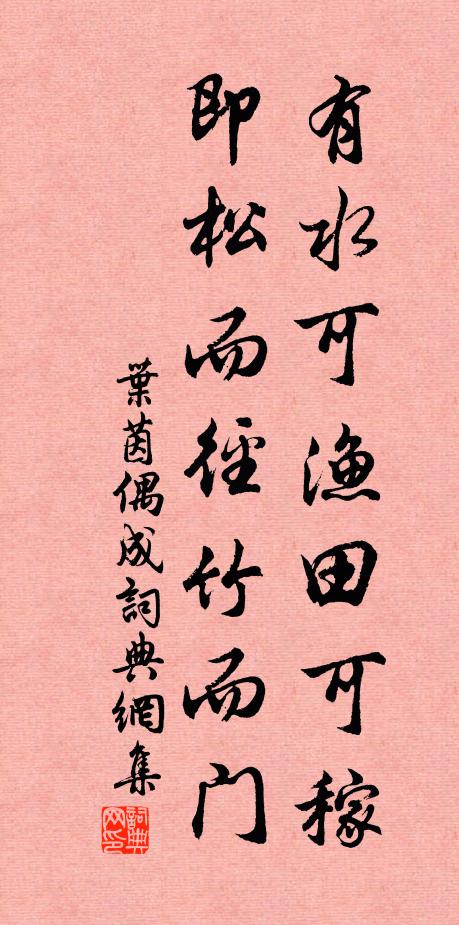 有水可漁田可稼
即松而徑竹而門
葉茵偶成詞典網集
詞典網印